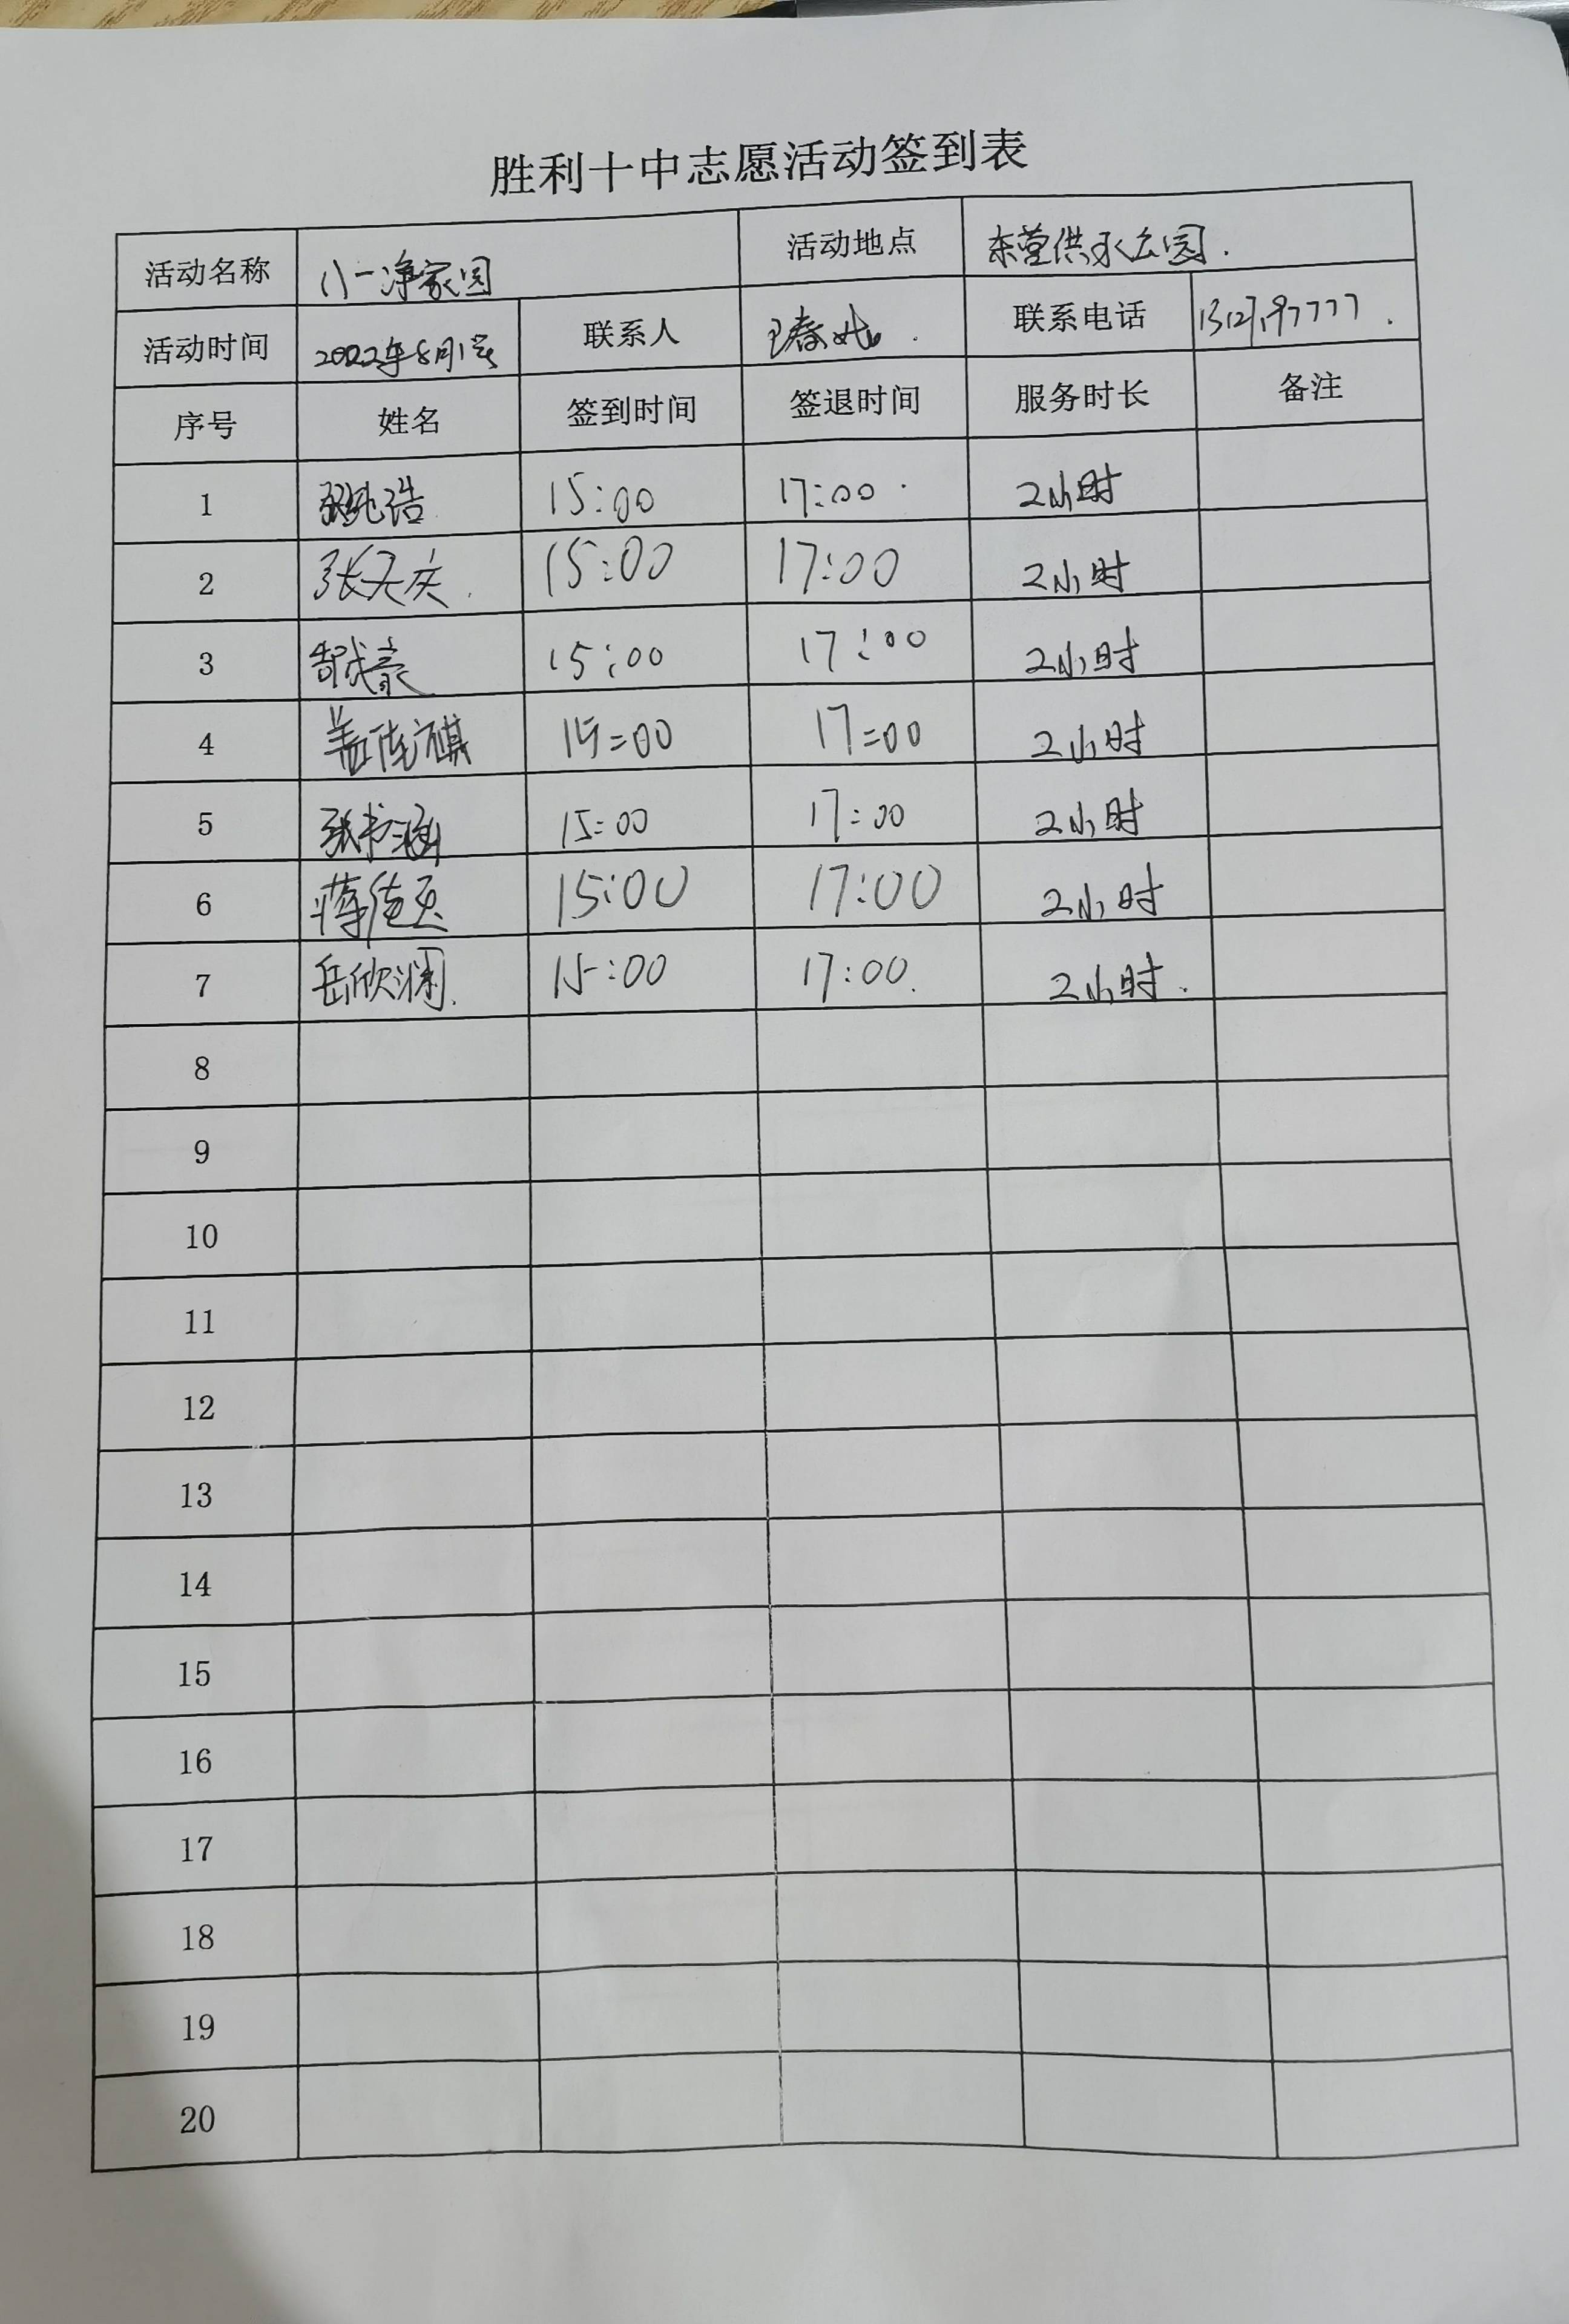 胜利十中志愿活动签到表
活动名称 八一净家园 活动地点 东营供水公园.
活动时间 2022年8月1号 联系人 王春 联系电话
序号 姓名 签到时间 签退时间 服务时长 备注
1 浩 15:00 17:00 2小时
2 张天庆 15:00 17:00 2小时
3 郜成豪 15:00 17:00 2小时
4 盖 祺 15:00 17:00 2小时
5 张书涵 15:00 17:00 2小时
6 蒋 15:00 17:00 2小时
7 岳欣澜 15:00 17:00 2小时
8
9
10
11
12
13
14
15
16
17
18
19
20